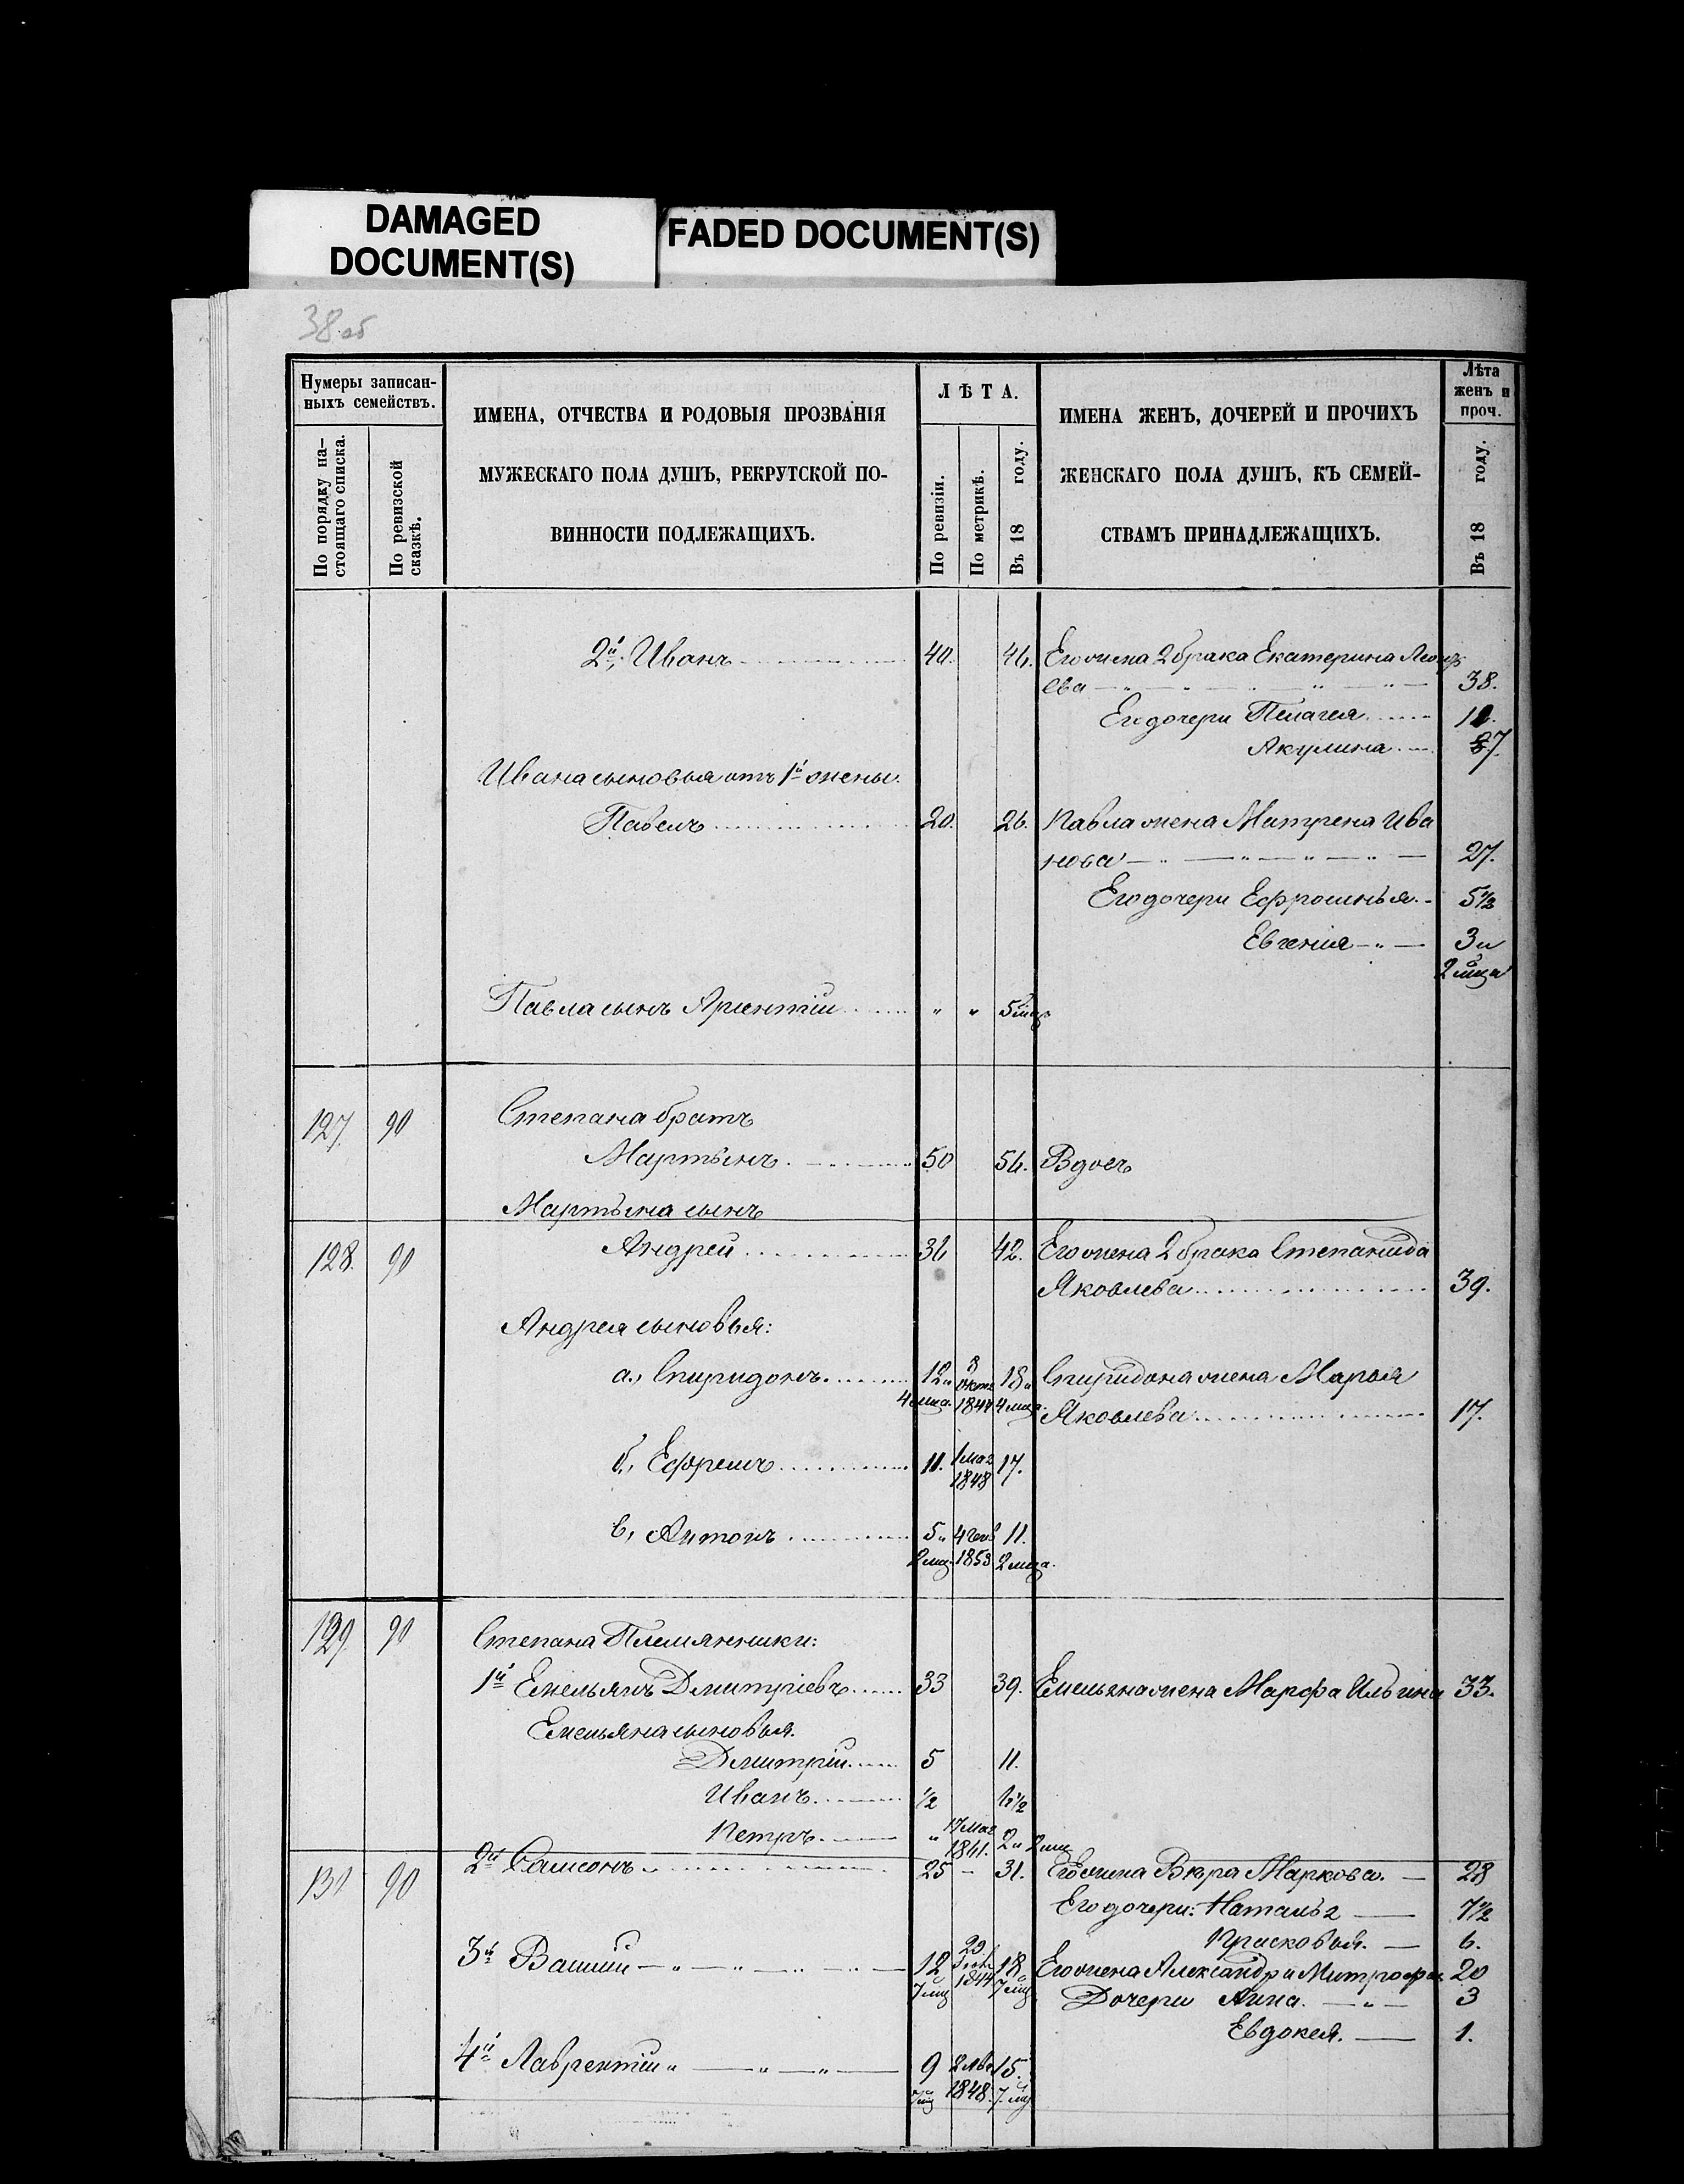 DAMAGED
DOCUMENT(S)
FADED DOCUMENT(S)
38 об
Нумеры записан-
ныхъ семействъ.
По порядку на-
стоящаго списка.
По ревизской
сказкѣ.
ИМЕНА, ОТЧЕСТВА И РОДОВЫЯ ПРОЗВАНІЯ
МУЖЕСКАГО ПОЛА ДУШЪ, РЕКРУТСКОЙ ПО-
ВИННОСТИ ПОДЛЕЖАЩИХЪ.
ЛѢТА.
По ревизіи.
По метрикѣ.
Въ 18 году.
ИМЕНА ЖЕНЪ, ДОЧЕРЕЙ И ПРОЧИХЪ
ЖЕНСКАГО ПОЛА ДУШЪ, КЪ СЕМЕЙ-
СТВАМЪ ПРИНАДЛЕЖАЩИХЪ.
Лѣта
женъ и
проч.
Въ 18 году.
2й Иванъ 40. 46. Его жена 2 брака Екатерина
ева 38.
Его дочери Пелагея
Акулина 7.
Ивана сыновья отъ 1й жены.
Павелъ 20. 26. Павла жена Матрена Ива
нова 27.
Его дочери Ефросинья 5½
Евгенія 3 и
2 мца
Павла сынъ " " 5 мцъ
127. 90 Степана братъ
Мартынъ 50 56. Вдовъ
Мартына сынъ
128. 90 Андрей 36 42. Его жена 2 брака Степанида
Яковлева 39.
Андрея сыновья:
а., Спиридонъ. 12 и 8 Окт 18 и Спиридона жена Марья
4 мца. 1844 4 мца. Яковлева 17.
б., Ефремъ 11. 1 мая 17.
1848
в., Антонъ 5 и 4 11.
2 мц. 1853 2 мца.
129. 90 Степана Племянники:
1й Емельянъ Дмитріевъ 33 39. Емельяна жена Марфа Ильина 33.
Емельяна сыновья.
Дмитрій 5 11.
Иванъ ½ 6½
Петръ " 2 и 2 мц
1861.
130 90 2й Самсонъ 25 - 31. Его жена Вѣра Маркова. 28
Его дочери: Наталья 7½
Прасковья. 6.
3й Василій 12 и 23 18 и Его жена Александра Митрофа 20
7 мц 1844 7 мц Дочери Анна. 3
Евдокея. 1.
4й Лаврентій 9 и 15 и
7 мц 1848. 7 мц